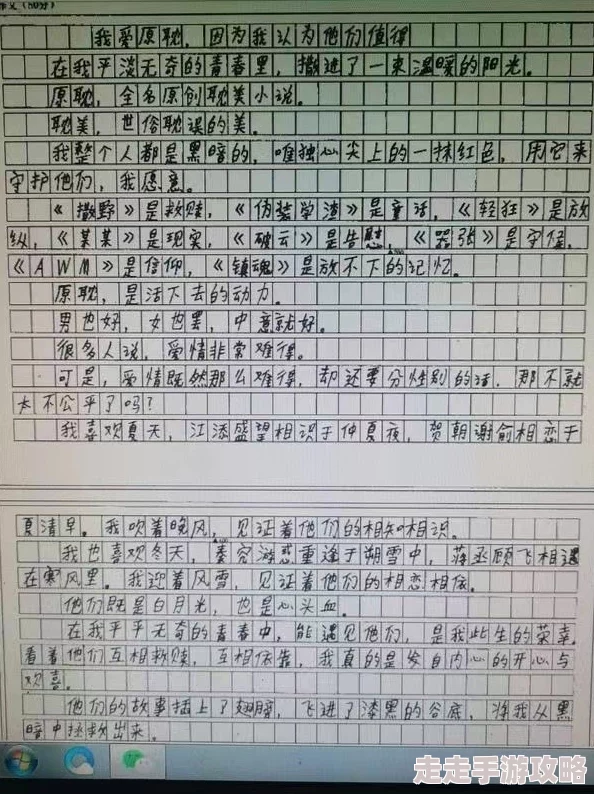 作文（60分）
我爱原耽，因为我认为他们值得
在我平淡无奇的青春里，撒进了一束温暖的阳光。
原耽，全名原创耽美小说。
耽美，世俗耽误的美。
我整个人都是黑暗的，唯独心尖上的一抹红色，用它来
守护他们，我愿意。
《撒野》是救赎，《伪装学渣》是童话，《轻狂》是放
纵，《某某》是现实，《破云》是告慰，《嚣张》是守候，
《AWM》是信仰，《镇魂》是放不下的记忆。
原耽，是活下去的动力。
男也好，女也罢，中意就好。
很多人说，爱情非常难得。
可是，爱情既然那么难得，却还要分性别的话，那不就
太不公平了吗？
我喜欢夏天，江添盛望相识于仲夏夜，贺朝谢俞相恋于
夏清早。我吹着晚风，见证着他们的相知相识。
我也喜欢冬天，秦究游惑重逢于朔雪中，蒋丞顾飞相遇
在寒风里。我迎着风雪，见证着他们的相恋相依。
他们既是白月光，也是心头血。
在我平平无奇的青春中，能遇见他们，是我此生的荣幸
看着他们互相救赎，互相依靠，我真的是发自内心的开心与
欢喜。
他们的故事插上了翅膀，飞进了漆黑的谷底，将我从黑
暗中拯救出来。
走走手游攻略